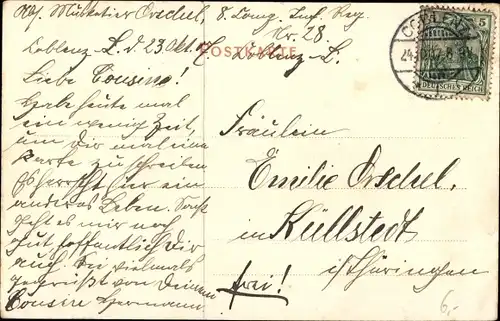 Abs. Musketier Orschel, 8. Comp. Inf. Reg.
Nr. 28.
Coblenz-L. d. 23 Okt. 07
POSTKARTE
Coblenz-L.
Liebe Cousine!
Habe heute mal
ein wenig Zeit,
um Dir mal eine
Karte zu schreiben
Es herrscht hier ein
anderes Leben. Sonst
geht es mir noch
gut, hoffentlich Dir
auch. Sei vielmals
gegrüßt von Deinem
Cousin Hermann
COBLENZ
24.10.07
5
DEUTSCHES REICH
Fräulein
Emilie Orschel,
in Küllstedt
i/Thüringen
frei!
6,-